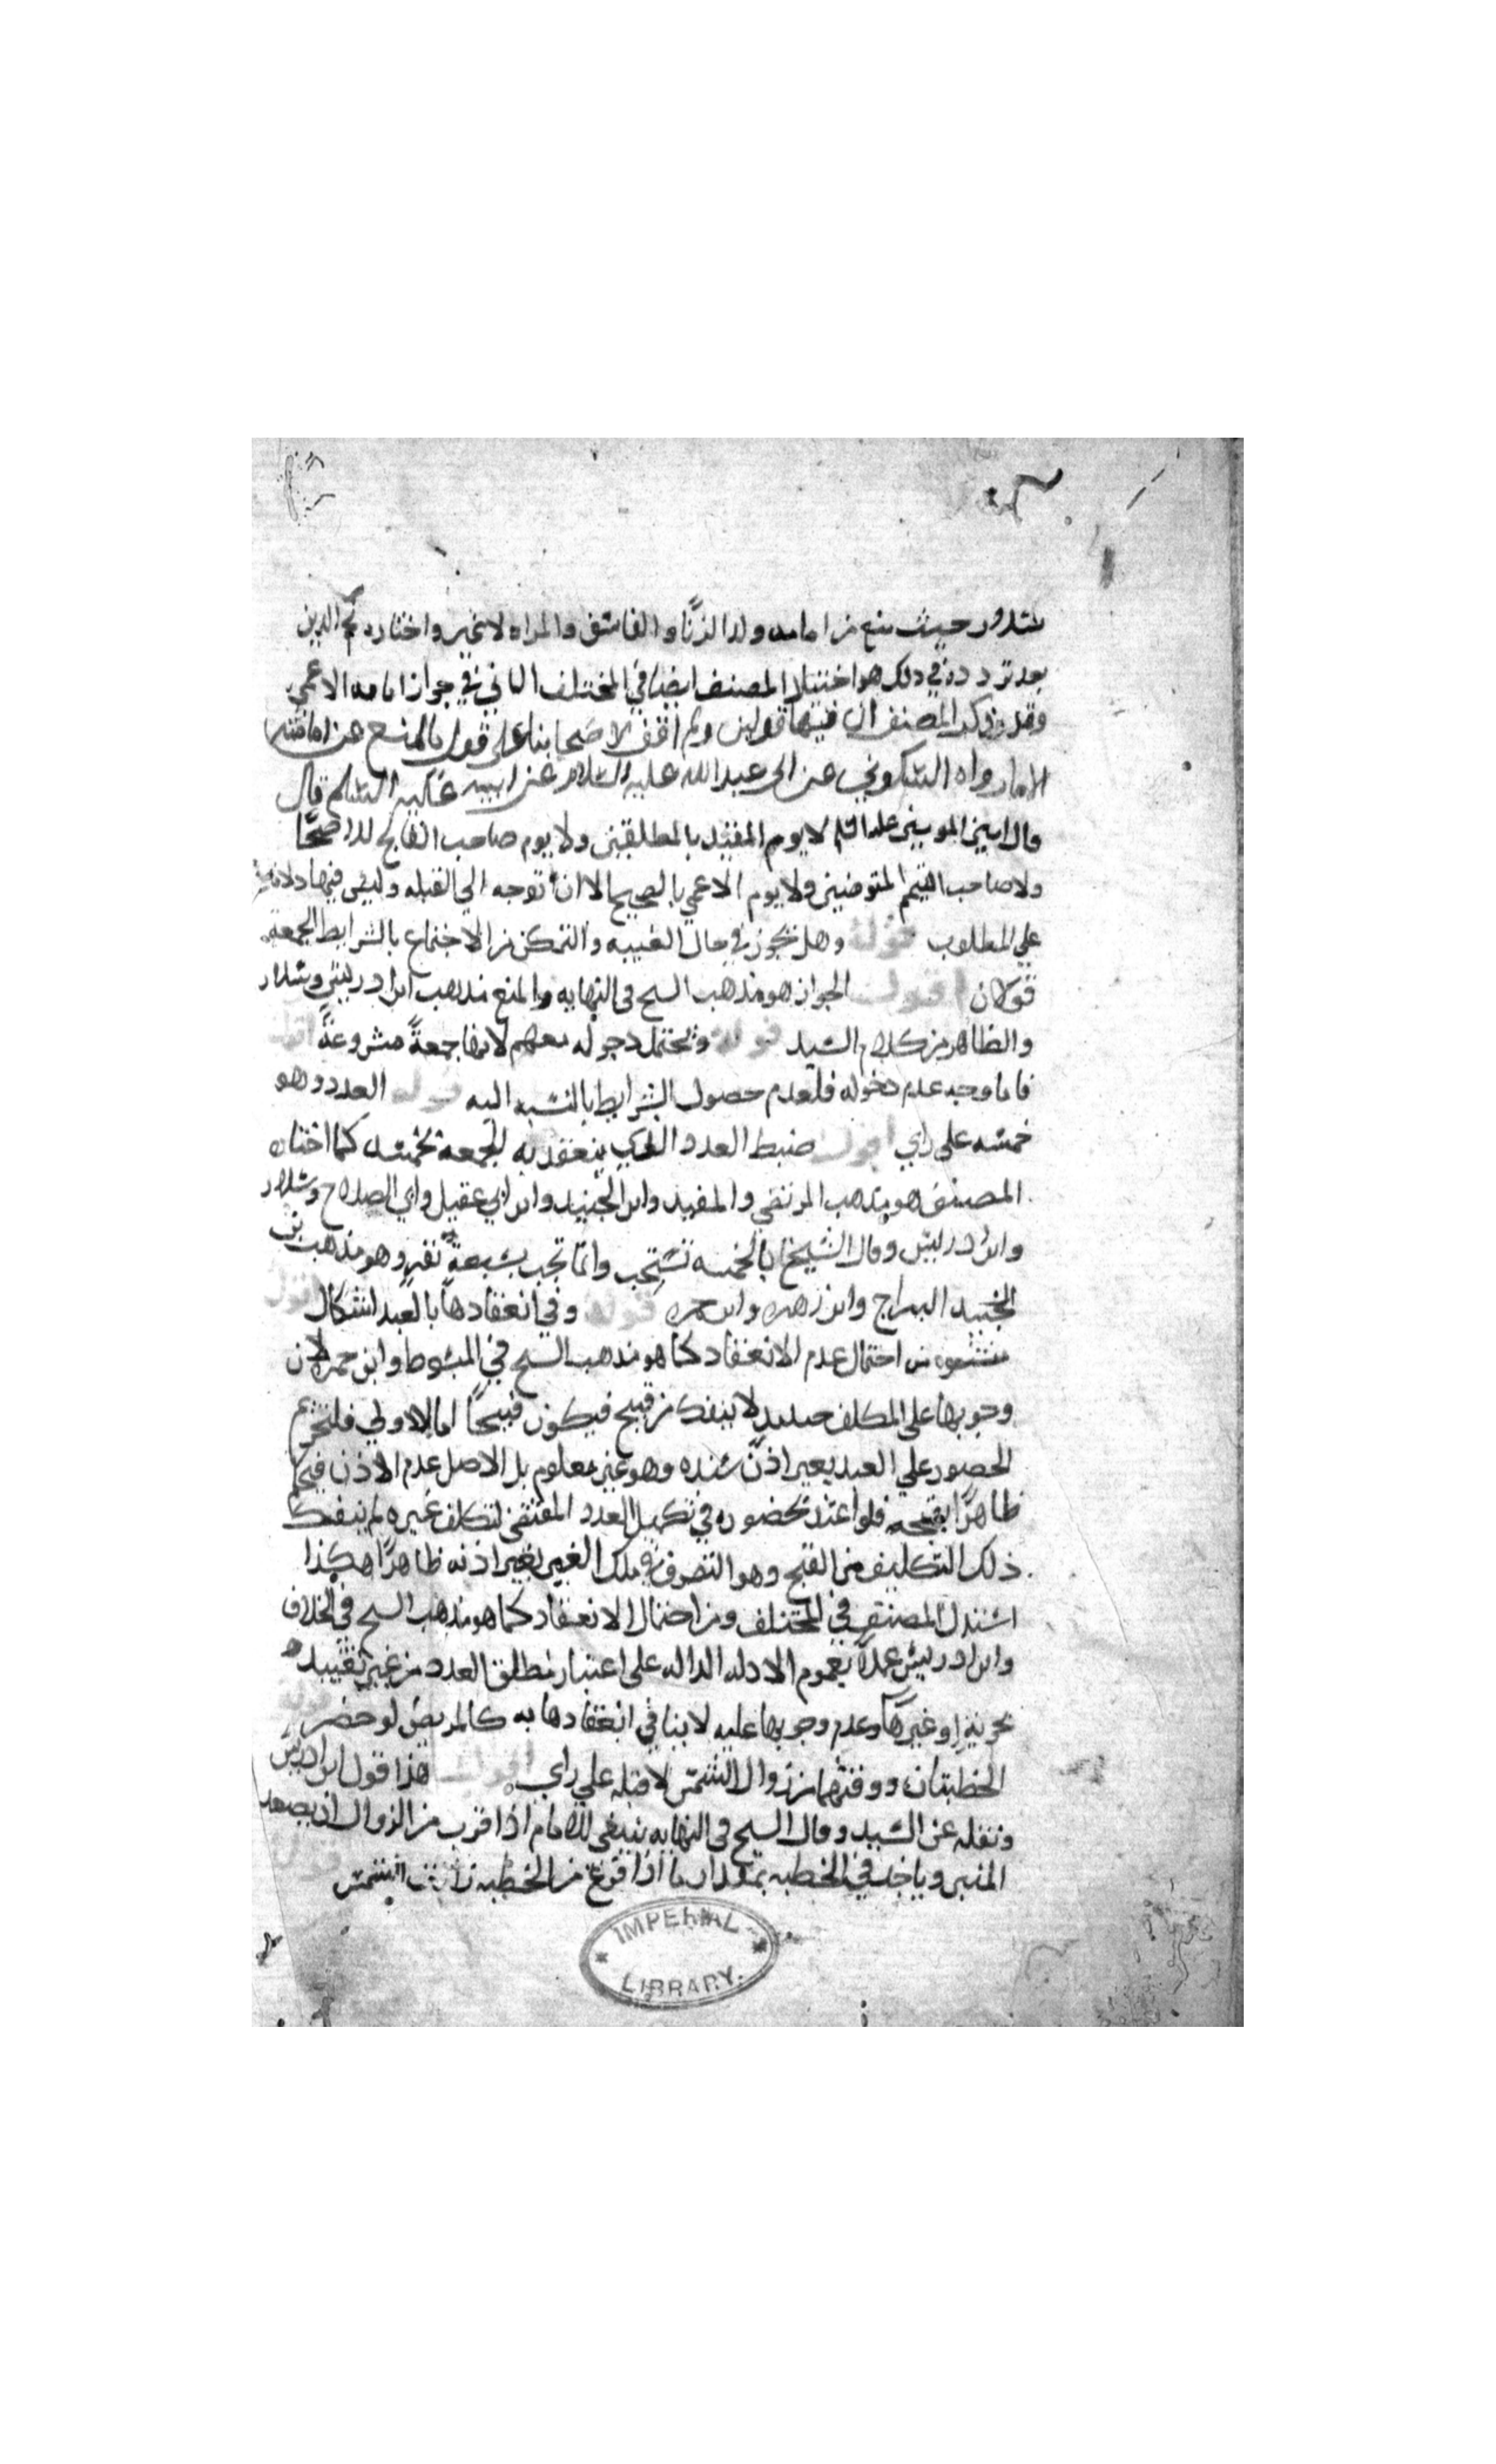 سلار حيث منع من امامه ولد الزنا والفاسق والمراه لا غير واختاره نجم الدين
بعد تردده في ذلك هو اختيار المصنف ايضا في المختلف الثاني في جواز امامه الاعمى
وقد ذكر المصنف ان فيها قولين ولم اقف لاصحابنا على قول بالمنع من امامته
الا ما رواه السكوني عن ابي عبد الله عليه السلام عن ابيه عليه السلام قال
قال امير المومنين عليه السلم لا يوم المقيد بالمطلقين ولا يوم صاحب الفالج الاصحا
ولا صاحب التيمم المتوضين ولا يوم الاعمي بالصحيح الا ان توجه الي القبله وليس فيها دلاله
علي المطلوب قوله وهل تجوز في حال الغيبه والتمكن من الاجتماع بالشرايط الجمعة
قولان اقول الجواز هو مذهب الشيخ في النهايه والمنع مذهب ابن ادريس وسلار
والظاهر من كلام السيد قوله ويحتمل دخوله معهم لانها جمعةً مشروعةً اقول
فاما وجه عدم دخوله فلعدم حصول الشرايط بالنسبه اليه قوله العدد وهو
خمسه على راي اقول ضبط العدد الذي ينعقد به الجمعه بخمسه كما اختاره
المصنف هو مذهب المرتضي والمفيد وابن الجنيد وابن ابي عقيل وابي الصلاح وسلار
وابن ادريس وقال الشيخ بالخمسه تستحب وانما تجب بسبعة نفر وهو مذهب بن
الجنيد البراج وابن زهره وابن حمزه قوله وفي انعقادها بالعبد اشكال اقول
منشوه من احتمال عدم الانعقاد كما هو مذهب الشيخ في المبسوط وابن حمزه لان
وجوبها على المكلف حينيذ لا ينفك من قبيح فيكون قبيحًا اما الاولي فلتحريم
الحصور علي العبد بغير اذن سيده وهو غير معلوم بل الاصل عدم الاذن فيحكم
ظاهرًا بقبحه فلو اعتد بحضوره في تكميل العدد المقتضي لتكلف غيره لم ينفك
ذلك التكليف من القبح وهو التصرف في ملك الغير بغير اذنه ظاهرًا هكذا
استدل المصنف في المختلف ومن احتمال الانعقاد كما هو مذهب الشيخ في الخلاف
وابن ادريس عملاً بعموم الادله الداله على اعتبار مطلق العدد من غير تقييد
بحرية او غيرها وعدم وجوبها عليه لا ينافي انعقادها به كالمريض لو حضر قوله
الخطبتان ووقتهما زوال الشمس لا قبله علي راي اقول هذا قول ابن ادريس
ونقله عن السيد وقال الشيخ في النهايه ينبغي للامام اذا قرب من الزوال ان يصعد
المنبر وياخذ في الخطبه بمقدار ما اذا فرغ من الخطبه زالت الشمس
IMPERIAL
LIBRARY.